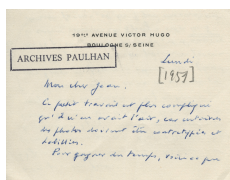 19BIS AVENUE VICTOR HUGO
BOULOGNE S/ SEINE
ARCHIVES PAULHAN
Lundi
[1957]
Mon cher Jean.
Ce petit travail est plus compliqué
qu'il n'en avait l'air, car certaines
des photos doivent être
Pour gagner du temps, voici ce que